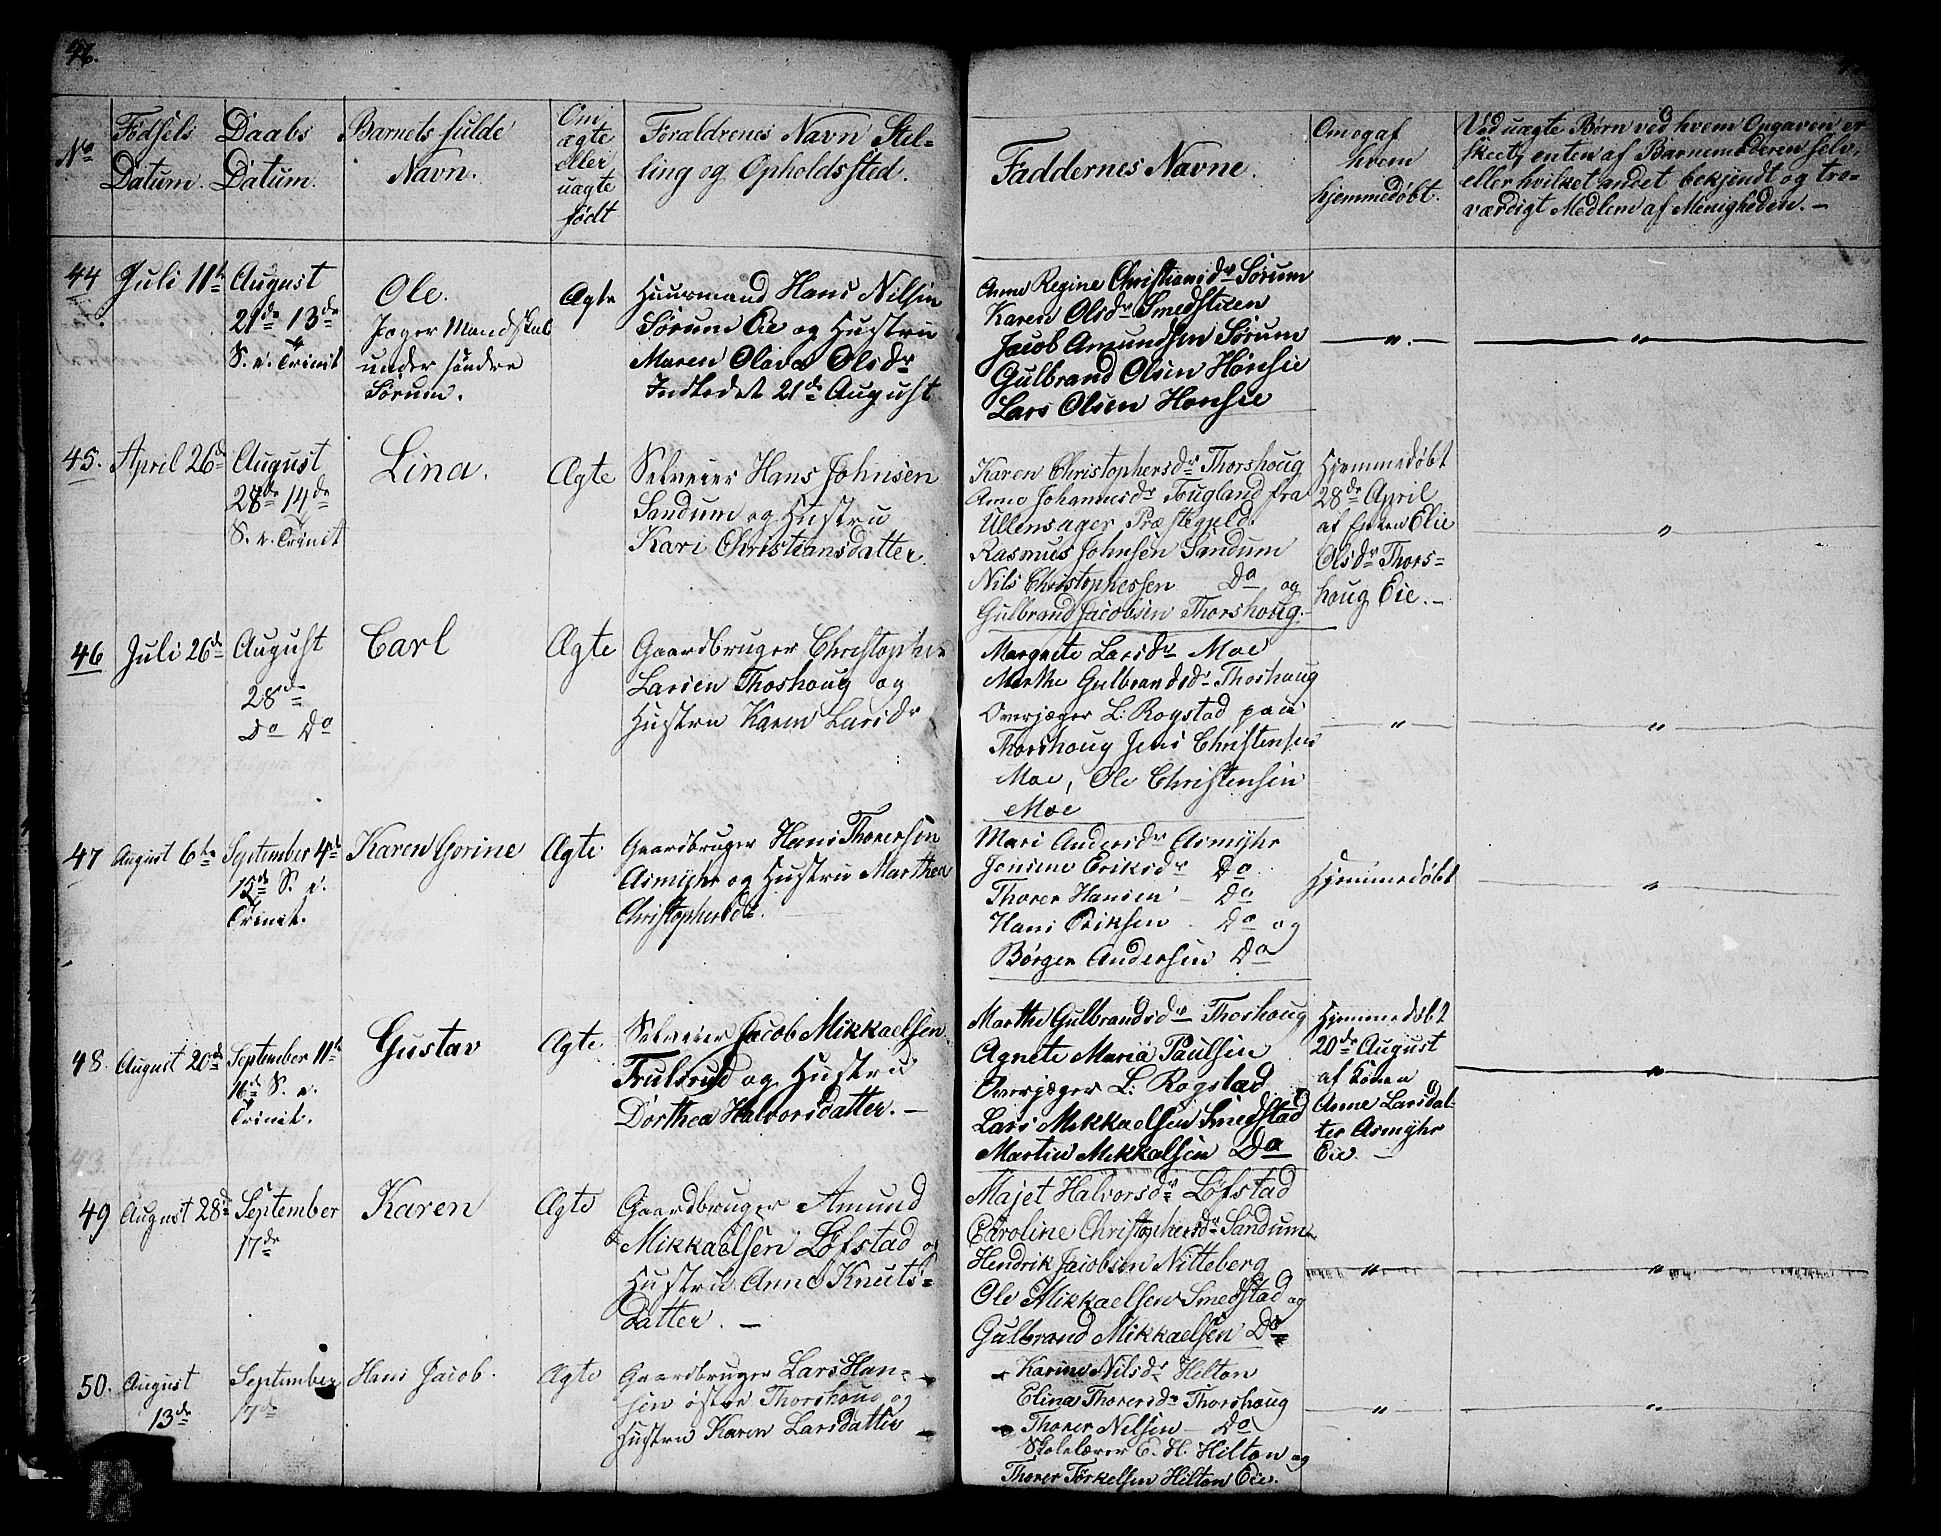 46.
No
Fødsels Datum.
Daabs Datum.
Barnets fulde Navn.
Om ægte eller uægte født
Forældrenes Navn Stel-
ling og Opholdssted.
Faddernes Navne.
Om og af hvem hjemmedøbt.
Ved uægte Børn ved hvem Opgaven er
skeet, enten af Barnemoderen selv,
eller hvilket andet bekjendt og tro-
værdigt Medlem af Menigheden. —
44
Juli 11te
August
21de 13de
S. e. Trinit
Ole.
Jæger Mandskab
under søndre
Sørum.
Ægte
Huusmand Hans Nilsen
Sørum Eie og Hustru
Maren Olava Olsdr
Indledet 21de August
Anne Regine Christiansdr Sørum
Karen Olsdr Smedstuen
Jacob Amundsen Sørum
Gulbrand Olsen Hønsie
Lars Olsen Hønsie
— " —
— " —
45.
April 26de
August
28de 14de
S. e. Trinit
Lina.
Ægte
Selveier Hans Johnsen
Sandum og Hustru
Kari Christiansdatter.
Karen Christophersdr Thorshoug
Anne Johannesdr Fougland fra
Ullensager Præstegjeld.
Rasmus Johnsen Sandum
Nils Christophessen Do og
Gulbrand Jacobsen Thorshoug.
Hjemmedøbt
28de April
af Enken Elie
Olsdr Thors=
houg Eie. —
"
46
Juli 26de
August
28de
Do Do
Carl
Ægte
Gaardbruger Christopher
Larsen Thoshoug og
Hustru Karen Larsdr
Margrete Larsdr Moe
Marthe Gulbrandsdr Thoshoug
Overjæger L: Rogstad paa
Thorshoug Jens Christensen
Moe, Ole Christensen
Moe
"
"
47
August 6te
September 4de
15de S. e.
Trinit.
Karen Gorine
Ægte
Gaardbruger Hans Thorersen
Asmyhr og Hustru Marthea
Christophersdr.
Mari Andersdr Asmyhr
Jensine Eriksdr Do
Thorer Hansen — Do
Hans Eriksen — Do og
Børger Andersen Do
Hjemmedøbt
"
48.
August 20de
September 11te
16de S. e.
Trinit.
Gustav
Ægte
Selveier Jacob Mikkaelsen
Frulsrud og Hustru
Dorthea Halvorsdatter. —
Marthe Gulbrandsdr Thoshoug
Agnete Maria Paulsen
Overjæger L: Rogstad
Lars Mikkaelsen Smedstad
Martin Mikkalsen Do
Hjemmedøbt
20de August
af Konen
Anne Larsdat-
ter Asmyhr
Eie. —
"
49
August 28de
September
17de
Karen
Ægte
Gaardbruger Amund
Mikkaelsen Løfstad og
Hustru Anne Knuts=
datter. —
Majet Halvorsdr Løfstad
Caroline Christophersdr Sandum
Hendrik Jacobsen Nitteberg
Ole Mikkaelsen Smedstad og
Gulbrand Mikkaelsen Do
"
"
50.
August
13de
September
17de
Hans Jacob.
Ægte
Gaardbruger Lars Han-
sen østre Thorshoug og
Hustru Karen Larsdatter
Karine Nilsdr Hilton
Elina Thorersdr Thorshoug
Thorer Nilsen — Do
Skolelærer E. H. Hilton og
Thorer Torkelsen Hilton Eie.
"
"